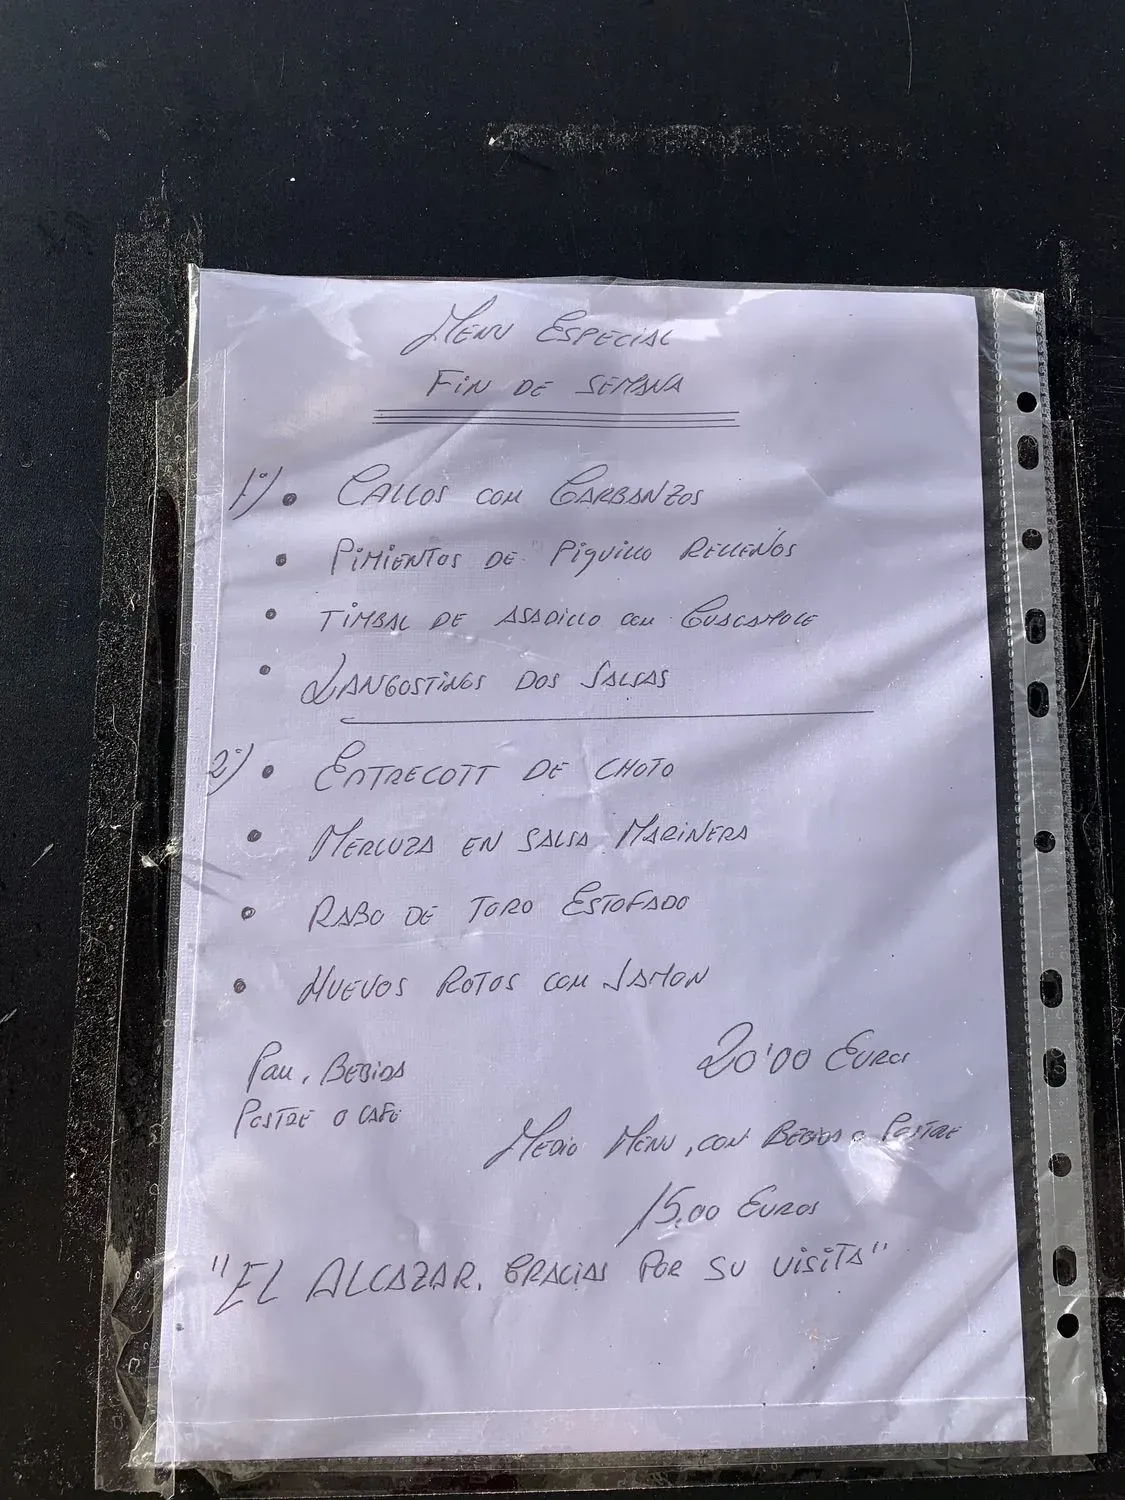 MENU ESPECIAL
FIN DE SEMANA
1º) • CALLOS CON GARBANZOS
• PIMIENTOS DE PIQUILLO RELLENOS
• TIMBAL DE ASADILLO CON GUACAMOLE
• LANGOSTINOS DOS SALSAS
2º) • ENTRECOTT DE CHOTO
• MERLUZA EN SALSA MARINERA
• RABO DE TORO ESTOFADO
• HUEVOS ROTOS CON JAMON
PAN, BEBIDA
POSTRE O CAFE
20'00 EUROS
MEDIO MENU, CON BEBIDA O POSTRE
15,00 EUROS
"EL ALCAZAR. GRACIAS POR SU VISITA"